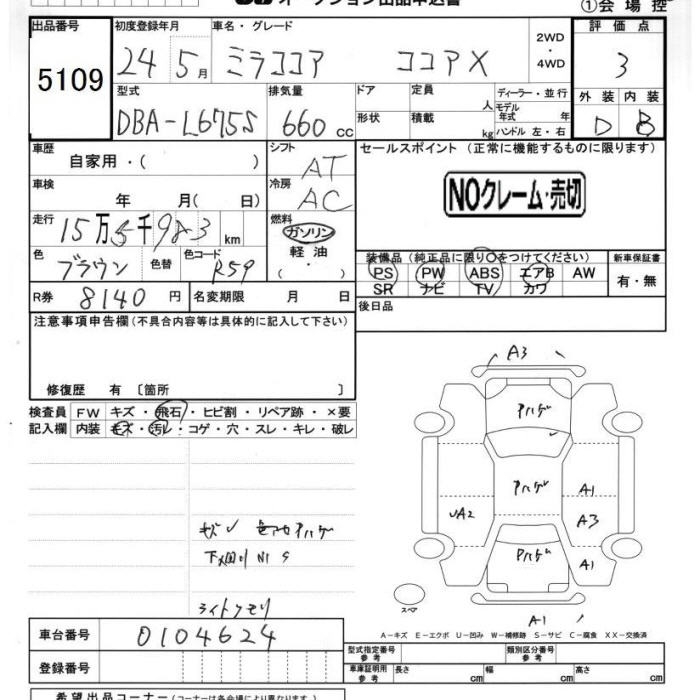 オークション出品申込書
①会場控
出品番号 5109
初度登録年月 24年 5月
車名・グレード ミラココア ココアX
2WD・4WD
評価点 3
外装 D 内装 B
型式 DBA-L675S
排気量 660 cc
ドア
形状
定員 人
積載 kg
ディーラー・並行
モデル年式 年
ハンドル 左・右
車歴 自家用・( )
シフト AT
車検 年 月( 日)
冷房 AC
走行 15万5千983 km
燃料 ガソリン・軽油・( )
色 ブラウン 色替 色コード R59
R券 8140 円 名変期限 月 日
セールスポイント (正常に機能するものに限ります)
NOクレーム・売切
装備品 (純正品に限り○をつけてください)
PS PW ABS エアB AW
SR ナビ TV カワ
新車保証書 有・無
後日品
注意事項申告欄 (不具合内容等は具体的に記入して下さい)
修復歴 有 〔箇所 〕
検査員記入欄
FW キズ・飛石・ヒビ割・リペア跡・×要
内装 キズ・汚レ・コゲ・穴・スレ・キレ・破レ
ライトクモリ
A3
アハゲ
アハゲ
アハゲ
UA2
A1
A3
A1
A1
スペア
A-キズ E-エクボ U-凹み W-補修跡 S-サビ C-腐食 XX-交換済
車台番号 0104624
登録番号
型式指定番号 参考
類別区分番号 参考
車庫証明用 参考 長さ cm 幅 cm 高さ cm
希望出品コーナー(コーナー名は各会場により異なります)